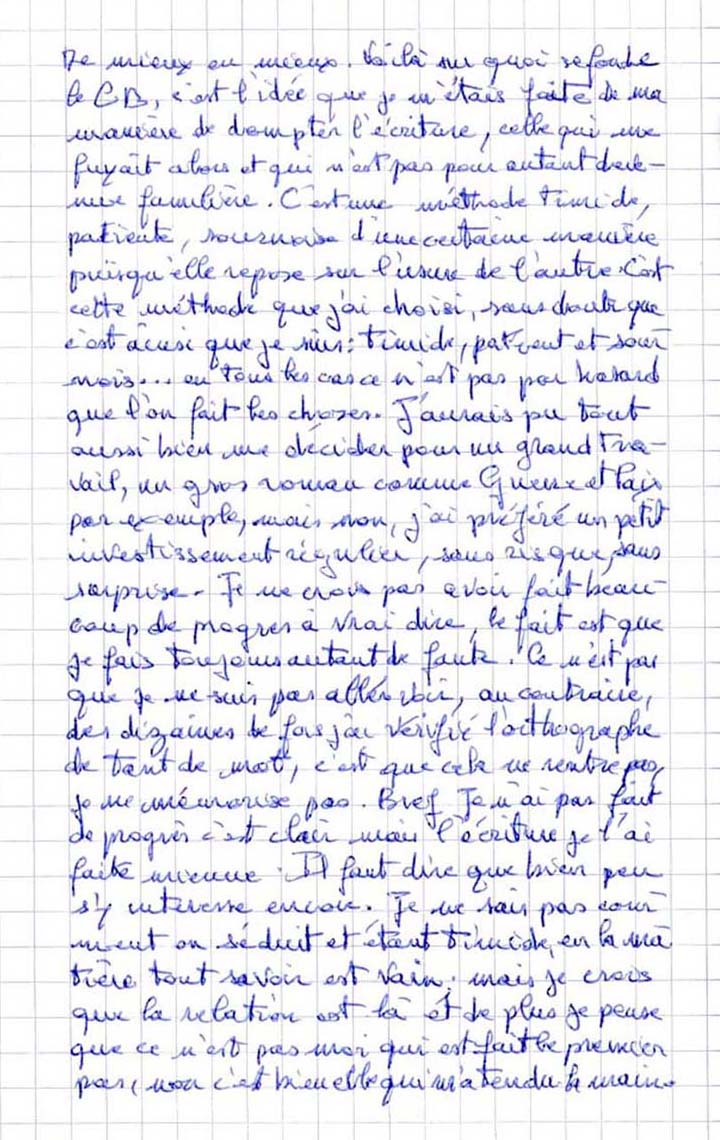 De mieux en mieux. Voilà sur quoi se fonde
le CB, c'est l'idée que je m'étais faite de ma
manière de dompter l'écriture, celle qui me
fuyait alors et qui n'est pas pour autant deve-
nue familière. C'est une méthode timide,
patiente, sournoise d'une certaine manière
puisqu'elle repose sur l'usure de l'autre. C'est
cette méthode que j'ai choisi, sans doute que
c'est ainsi que je suis : timide, patient et sour
nois... en tous les cas ce n'est pas par hasard
que l'on fait les choses. J'aurais pu tout
aussi bien me décider pour un grand tra-
vail, un gros roman comme Guerre et Paix
par exemple, mais non, j'ai préféré un petit
investissement régulier, sans risque, sans
surprise. Je ne crois pas avoir fait beau-
coup de progrès à vrai dire, le fait est que
je fais toujours autant de faute. Ce n'est pas
que je ne suis pas allés voir, au contraire,
des dizaines de fois j'ai vérifié l'orthographe
de tant de mot, c'est que cela ne rentre pas,
je ne mémorise pas. Bref Je n'ai pas fait
de progrès c'est clair mais l'écriture je l'ai
faite mienne. Il faut dire que bien peu
s'y interesse encore. Je ne sais pas com-
ment on séduit et étant timide, en la ma
tière tout savoir est vain, mais je crois
que la relation est là et de plus je pense
que ce n'est pas moi qui est fait le premier
pas, non c'est bien elle qui m'a tendu la main.